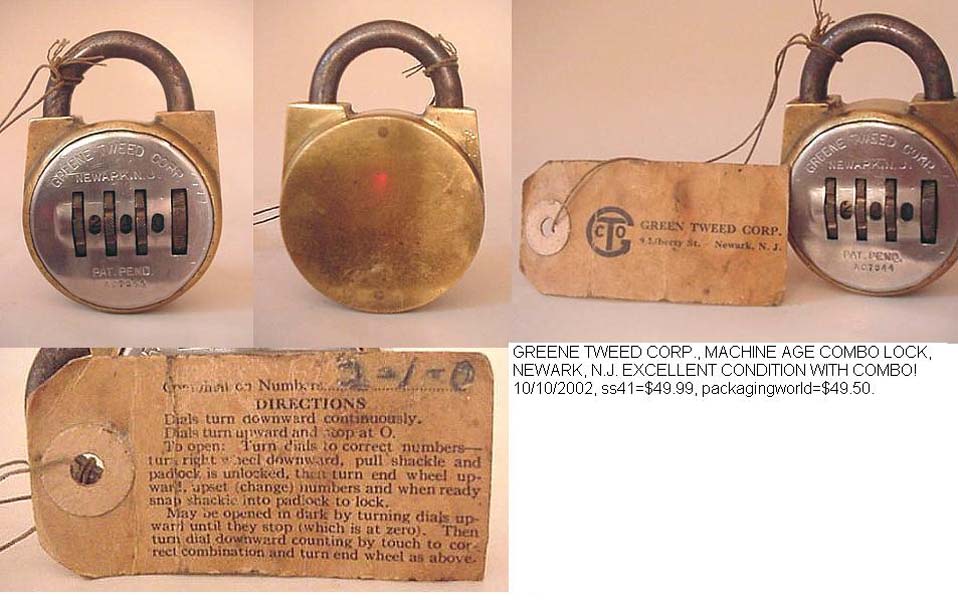 GREENE TWEED CORP.
NEWARK, N.J.
PAT. PEND.
GREENE TWEED CORP.
NEWARK, N.J.
PAT. PEND.
A07044
GTCO
GREEN TWEED CORP.
9 Liberty St. Newark, N. J.
Combination Numbers 2-1-0
DIRECTIONS
Dials turn downward continuously.
Dials turn upward and stop at O.
To open: Turn dials to correct numbers—
turn right wheel downward, pull shackle and
padlock is unlocked, then turn end wheel up-
ward, upset (change) numbers and when ready
snap shackle into padlock to lock.
May be opened in dark by turning dials up-
ward until they stop (which is at zero). Then
turn dial downward counting by touch to cor-
rect combination and turn end wheel as above.
GREENE TWEED CORP., MACHINE AGE COMBO LOCK,
NEWARK, N.J. EXCELLENT CONDITION WITH COMBO!
10/10/2002, ss41=$49.99, packagingworld=$49.50.